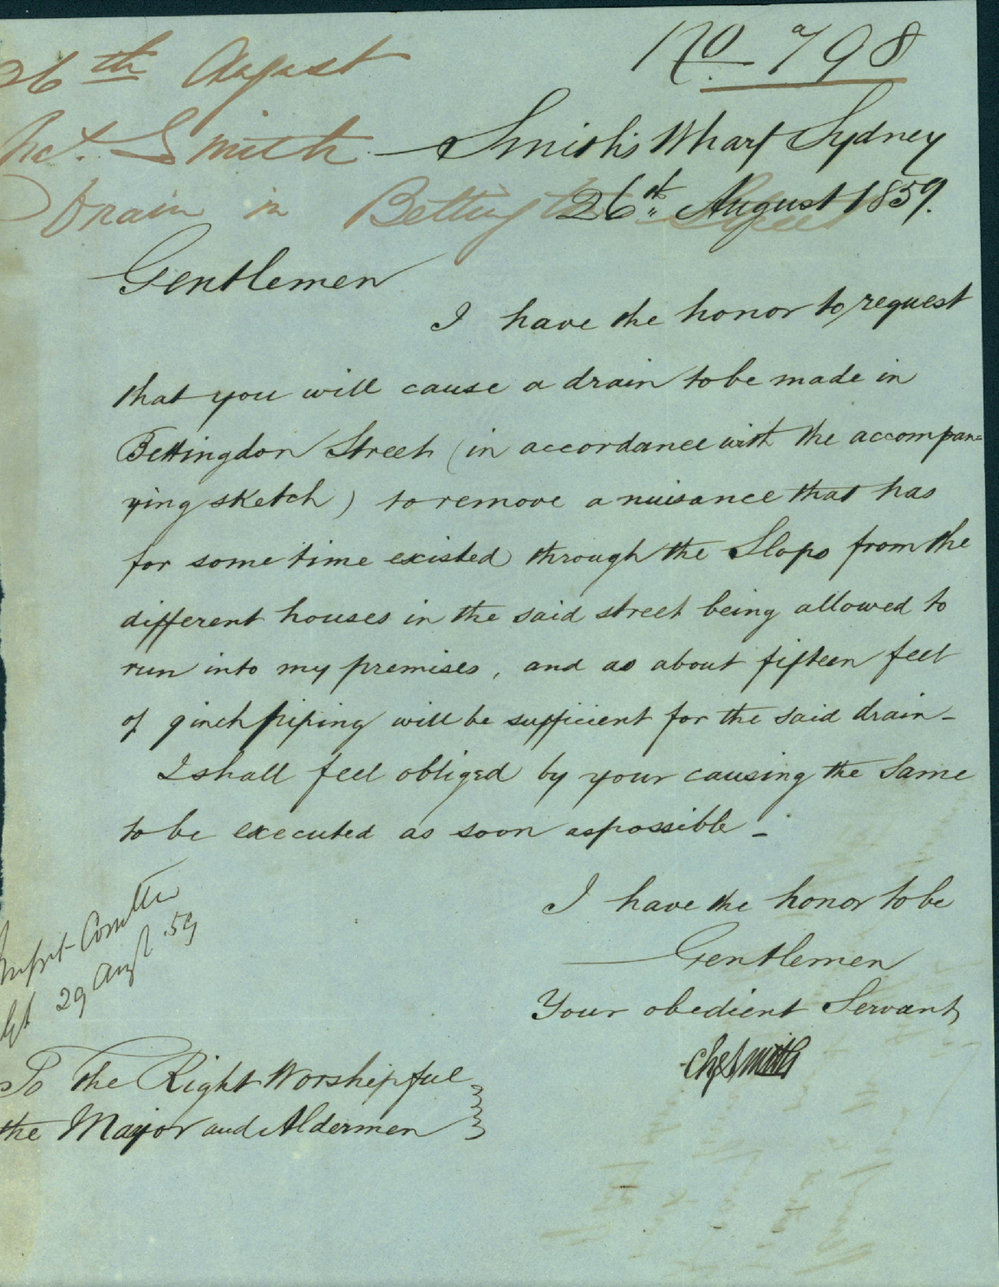 No 798
26th August
Chs. Smith
Drain in Bettington Street
Smith's Wharf Sydney
26th August 1859.
Gentlemen
I have the honor to request
that you will cause a drain to be made in
Bettingdon Street (in accordance with the accompan
ying sketch) to remove a nuisance that has
for some time existed through the Slops from the
different houses in the said street being allowed to
run into my premises, and as about fifteen feet
of 9 inch piping will be sufficient for the said drain -
I shall feel obliged by your causing the same
to be executed as soon as possible -
I have the honor to be
Gentlemen
Your obedient Servant
Chs Smith
29 Augt 59
To The Right Worshipful
the Mayor and Aldermen